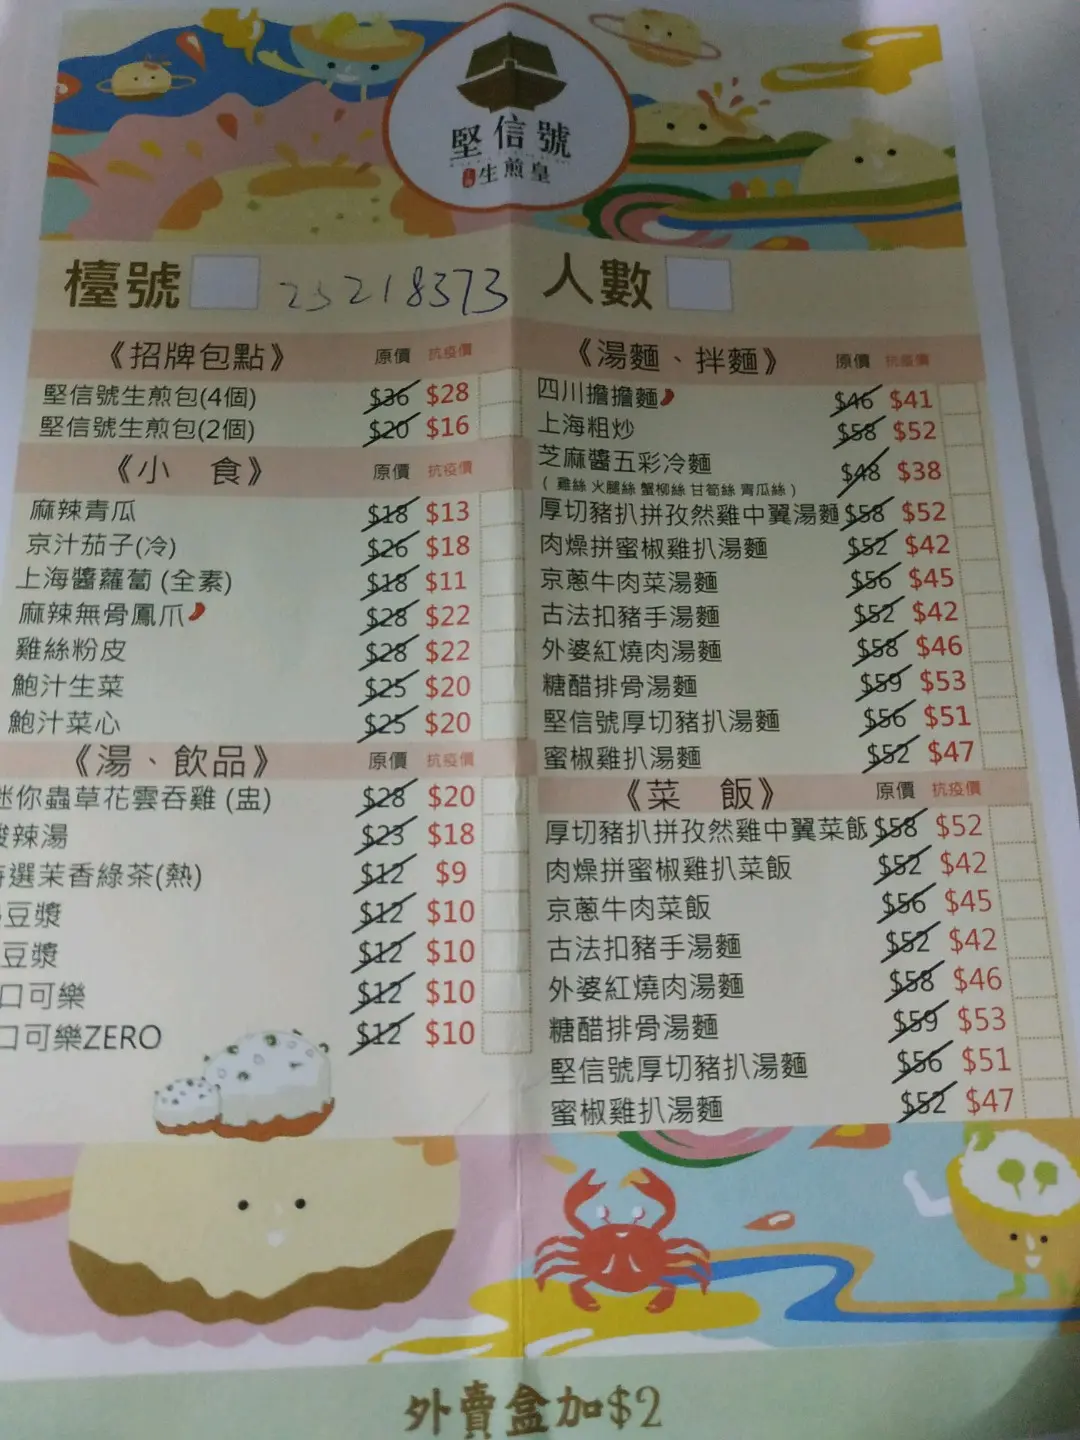 堅信號
上海生煎皇
檯號 25218373 人數
《招牌包點》 原價 抗疫價
堅信號生煎包(4個) $36 $28
堅信號生煎包(2個) $20 $16
《小 食》 原價 抗疫價
麻辣青瓜 $18 $13
京汁茄子(冷) $26 $18
上海醬蘿蔔 (全素) $18 $11
麻辣無骨鳳爪 $28 $22
雞絲粉皮 $28 $22
鮑汁生菜 $25 $20
鮑汁菜心 $25 $20
《湯、飲品》 原價 抗疫價
迷你蟲草花雲吞雞 (盅) $28 $20
酸辣湯 $23 $18
特選茉香綠茶(熱) $12 $9
豆漿 $12 $10
豆漿 $12 $10
口可樂 $12 $10
口可樂ZERO $12 $10
《湯麵、拌麵》 原價 抗疫價
四川擔擔麵 $46 $41
上海粗炒 $58 $52
芝麻醬五彩冷麵 $48 $38
( 雞絲 火腿絲 蟹柳絲 甘筍絲 青瓜絲 )
厚切豬扒拼孜然雞中翼湯麵 $58 $52
肉燥拼蜜椒雞扒湯麵 $52 $42
京蔥牛肉菜湯麵 $56 $45
古法扣豬手湯麵 $52 $42
外婆紅燒肉湯麵 $58 $46
糖醋排骨湯麵 $59 $53
堅信號厚切豬扒湯麵 $56 $51
蜜椒雞扒湯麵 $52 $47
《菜 飯》 原價 抗疫價
厚切豬扒拼孜然雞中翼菜飯 $58 $52
肉燥拼蜜椒雞扒菜飯 $52 $42
京蔥牛肉菜飯 $56 $45
古法扣豬手湯麵 $52 $42
外婆紅燒肉湯麵 $58 $46
糖醋排骨湯麵 $59 $53
堅信號厚切豬扒湯麵 $56 $51
蜜椒雞扒湯麵 $52 $47
外賣盒加$2